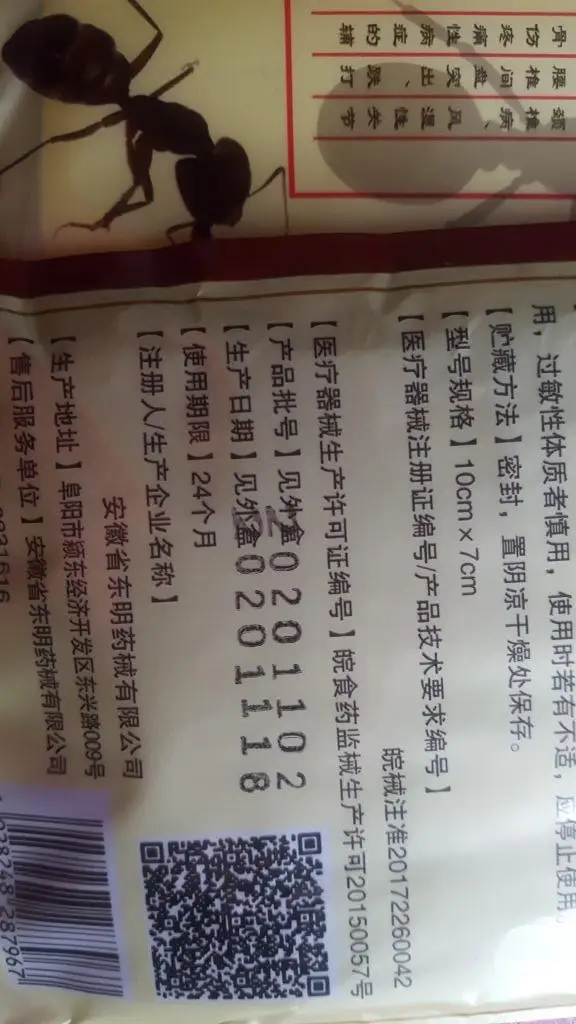 颈椎病、风湿性关节
腰椎间盘突出、跌打
骨伤疼痛性病症的辅
用，过敏性体质者慎用，使用时若有不适，应停止使用。
【贮藏方法】密封，置阴凉干燥处保存。
【型号规格】10cm×7cm
【医疗器械注册证编号/产品技术要求编号】
皖械注准20172260042
【医疗器械生产许可证编号】皖食药监械生产许可20150057号
【产品批号】见外盒 20201102
【生产日期】见外盒 20201118
【使用期限】24个月
【注册人/生产企业名称】
安徽省东明药械有限公司
【生产地址】阜阳市颍东经济开发区东兴路009号
【售后服务单位】安徽省东明药械有限公司
938248 287967